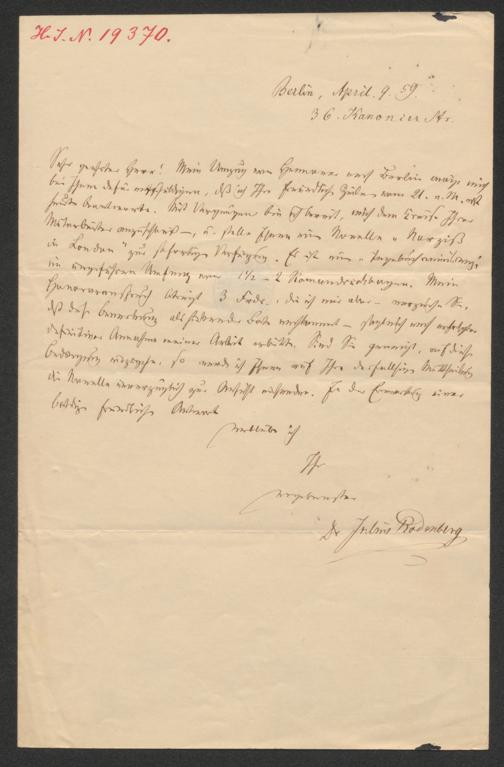 H. I. N. 19370.
Berlin, April. 9. 59.
36. Kanonier Str.
Sehr geehrter Herr! Mein Umzug von Hannover nach Berlin mag mich
bei Ihnen dafür entschuldigen, daß ich Ihre freundliche Zeilen vom 21. v. M. erst
heute beantworte. Mit Vergnügen bin ich bereit, mich dem Kreise Ihrer
Mitarbeiter anzuschließen, u. stelle Ihnen eine Novelle "
in London" zur sofortigen Verfügung. Es ist eine "
im ungefähren Umfang von 1½ – 2 Romandruckbogen. Mein
Honoraranspruch beträgt 3 Frdr., die ich mir aber – verzeihen Sie,
daß diese Bemerkung – sogleich nach erfolgter
definitiver Annahme meiner Arbeit erbitte. Sind Sie geneigt, auf diese
Bedingungen einzugehn, so werde ich Ihnen auf Ihre desfallsige Mittheilung
die Novelle unverzüglich zur Ansicht zusenden. In der Erwartung einer
baldigen freundlichen Antwort
verbleibe ich
Ihr
ergebenster
Dr Julius Rodenberg